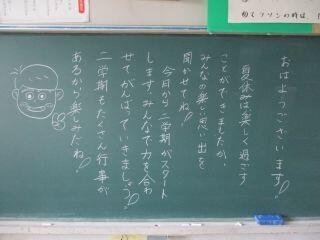 おはようございます!
夏休みは楽しく過ごす
ことができましたか。
みんなの楽しい思い出を
聞かせてね!
今日から二学期がスタート
します。みんなで力を合わ
せてがんばっていきましょう!
二学期もたくさん行事が
あるから楽しみだね!